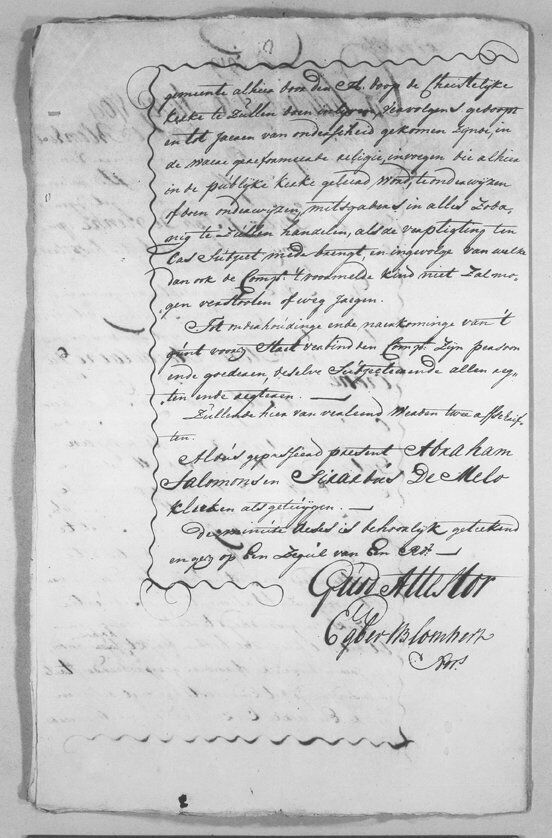 gemeente alhier door den H. Doop de Christelijke
kerke te Zullen doen inlyven, vervolgens gedoopt
en tot Jaaren van onderscheid gekomen Zynde, in
de waare gereformeerde religie, invoegen die alhier
in de publijke kerke geleerd word, te onderwyzen
of doen onderwyzen, mitsgaders in alles Zoda„
nig te Zullen handelen, als de verpligting ten
Cas Subject mede brengt, en ingevolge van welke
dan ook de Compt. 't voormelde kind niet Zal mo„
gen verstooten of weg jaegen.
Tot onderhoudinge ende naarkominge van 't
gunt voorsz Staet verbind den Compt. Zyn persoon
ende goederen, deselve Subjecteerende allen reg„
ten ende regteren.
Zullende hier van verleend werden twee affschrif„
ten.
Aldus gepasseerd present Abraham
Salomons en De Melo
klerken als getuygen.
De minute deses is behoorlijk geteekend
en gesz op Een Zegul van Een
Quod Attestor
Egbert Blomhert
Nots.